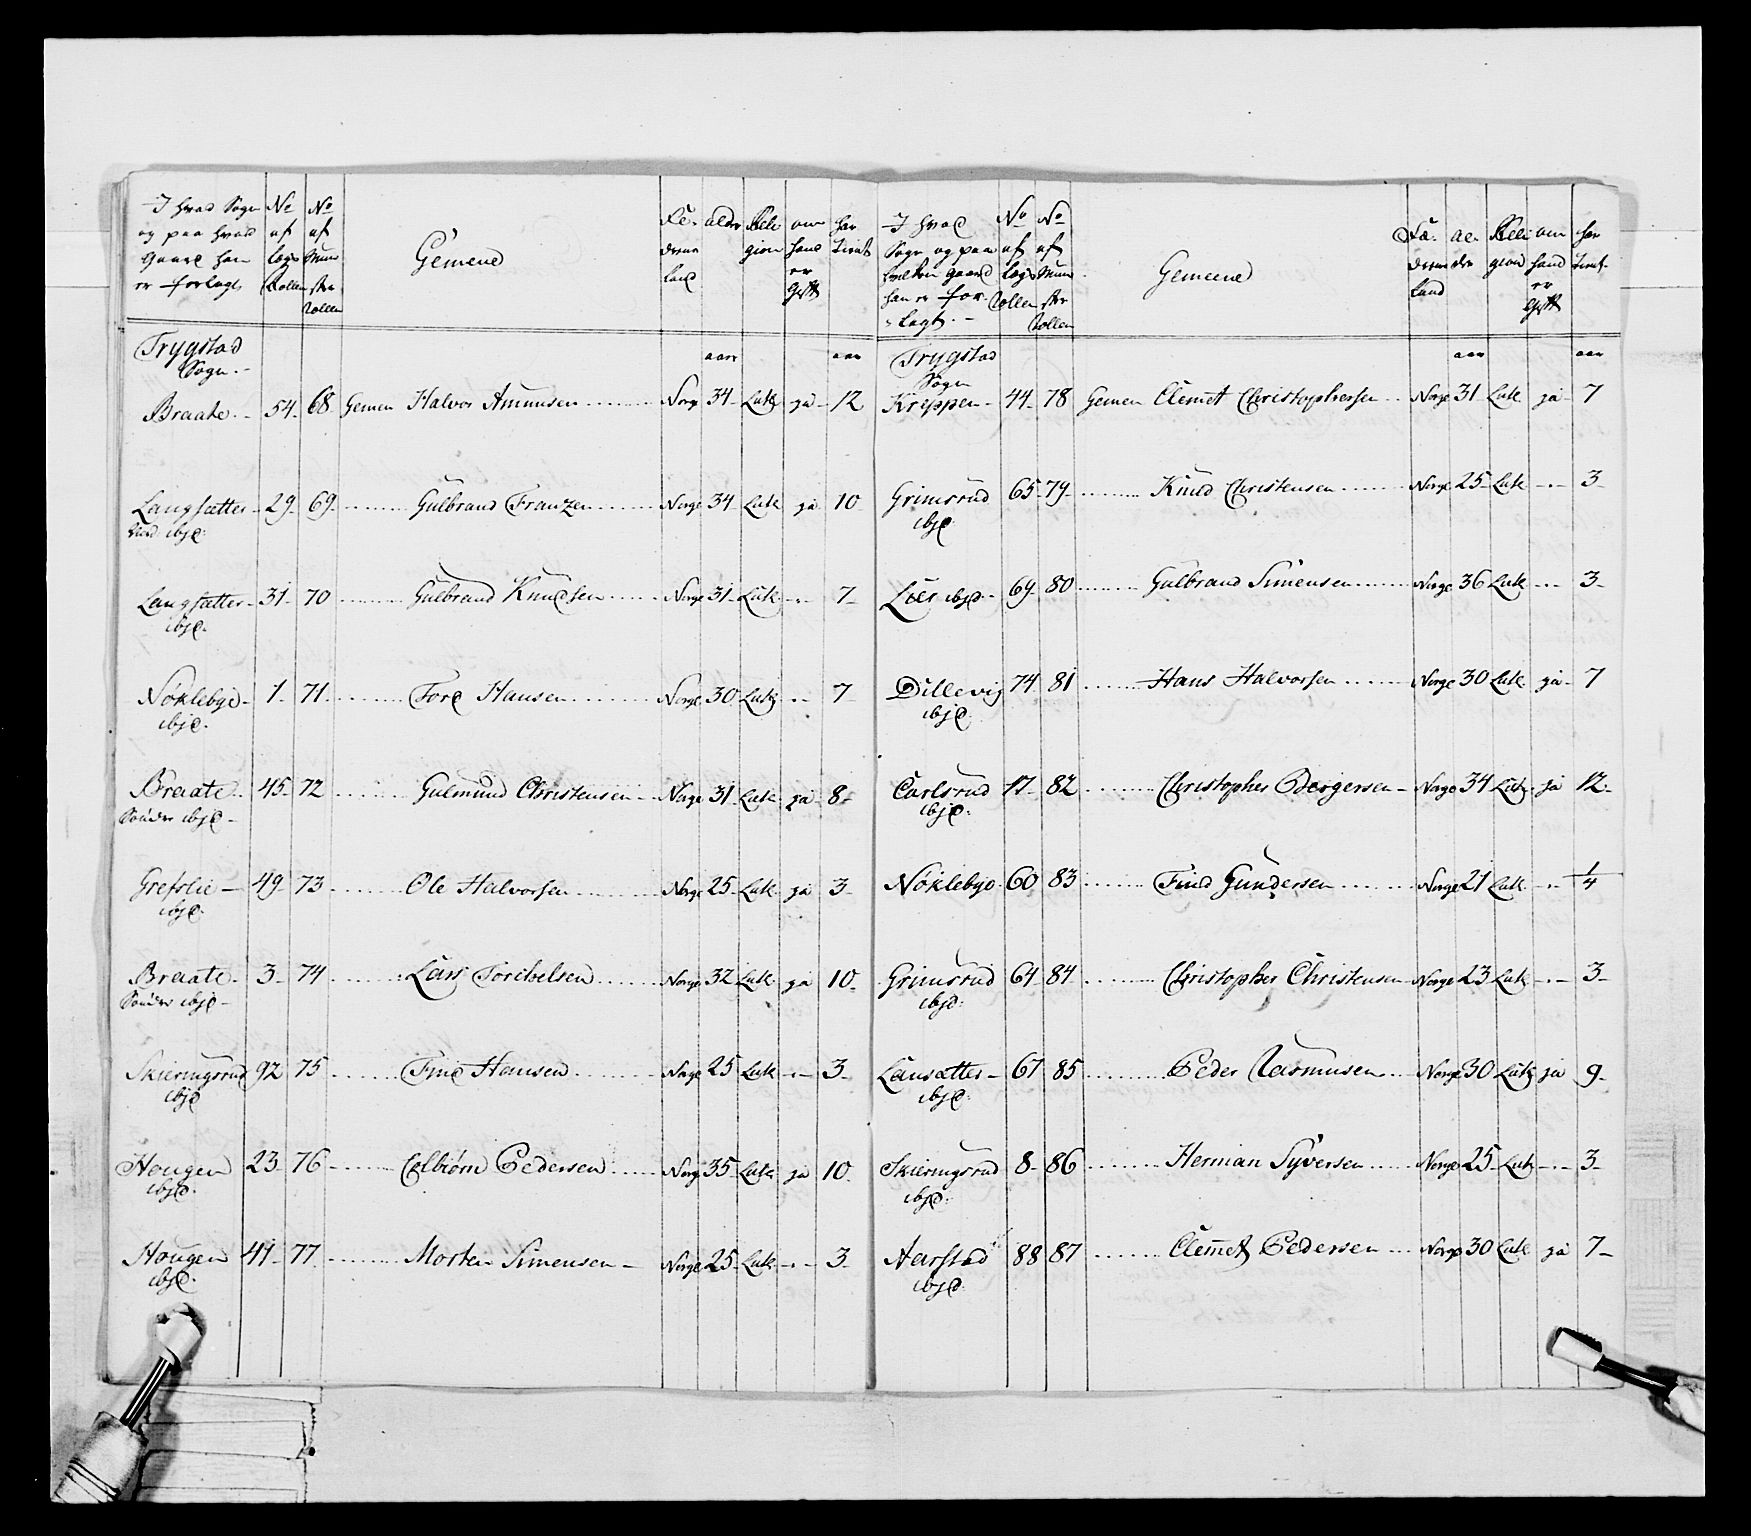 I hvad Sogn og paa hvad Gaard han er forlagt
No af Lægs Rollen
No af Munster Rollen
Gemene
Fæderne Land
alder
Religion
om hand er Gift
har tient
Trygstad Sogn.
aar
aar
Braate 54 68 Gemen Halvor Amunsen Norge 34 Luth ja 12
Langsætter ibd. 29 69 Gulbrand Franzen Norge 34 Luth ja 10
Langsætter ibd. 31 70 Gulbrand Knudsen Norge 31 Luth -.- 7
Nøklebye ibd. 1 71 Tore Hansen Norge 30 Luth -.- 7
Braate Sønder ibd. 45 72 Gulmund Christensen Norge 31 Luth ja 8
Grefslie ibd. 49 73 Ole Halvorsen Norge 25 Luth ja 3
Braate Sønder ibd. 3 74 Lars Torchelsen Norge 32 Luth ja 10
Skieringsrud ibd. 92 75 Find Hansen Norge 25 Luth -.- 3
Hougen ibd. 23 76 Pedersen Norge 35 Luth ja 10
Hougen ibd. 41 77 Morten Simensen Norge 25 Luth -.- 3
I hvad Sogn og paa hvilken Gaard han er forlagt.
No af Lægs Rollen
No af Munster Rollen
Gemeene
Fæderne Land
alder
Religion
om hand er Gift
har tient
Trygstad Sogn
aar
aar
Kreppen 44 78 Gemen Clemet Christophersen Norge 31 Luth ja 7
Grimsrud ibd. 65 79 Knud Christensen Norge 25 Luth -.- 3
Lier ibd. 69 80 Gulbrand Simensen Norge 36 Luth -.- 3
Dillevig ibd. 74 81 Hans Halvorsen Norge 30 Luth ja 7
Carlsrud ibd. 17 82 Christopher Børgersen Norge 34 Luth ja 12
Nøklebye 60 83 Find Gundersen Norge 21 Luth -.- 1/4
Grimsrud ibd. 64 84 Christopher Christensen Norge 23 Luth -.- 3
Lansætter ibd. 67 85 Peder Rasmusen Norge 30 Luth ja 9
Skieringsrud ibd. 8 86 Herman Syversen Norge 25 Luth -.- 3
Aarstad ibd. 88 87 Clemet Pedersen Norge 30 Luth ja 7